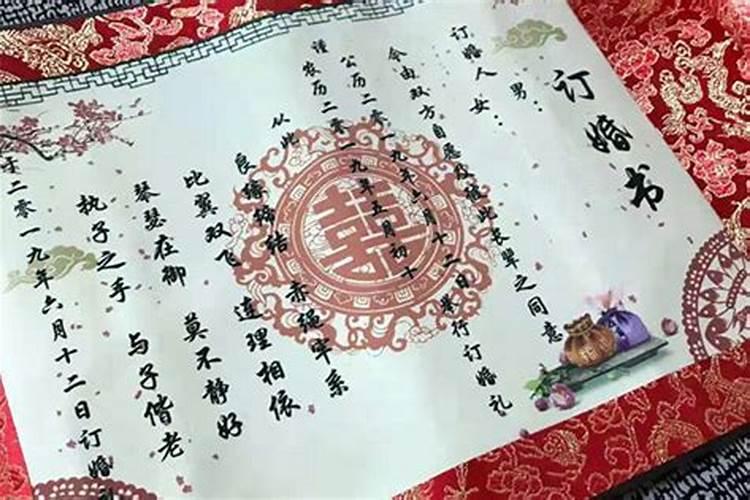 订婚书
男：
订婚人
女：
今由双方自愿及此长辈之同意
公历二零一九年六月十二日举行订婚礼
谨
农历二零一九年五月初十
从此
良缘缔结 赤绳牢系
比翼双飞 连理相依
琴瑟在御 莫不静好
执子之手 与子偕老
于二零一九年六月十二日订婚